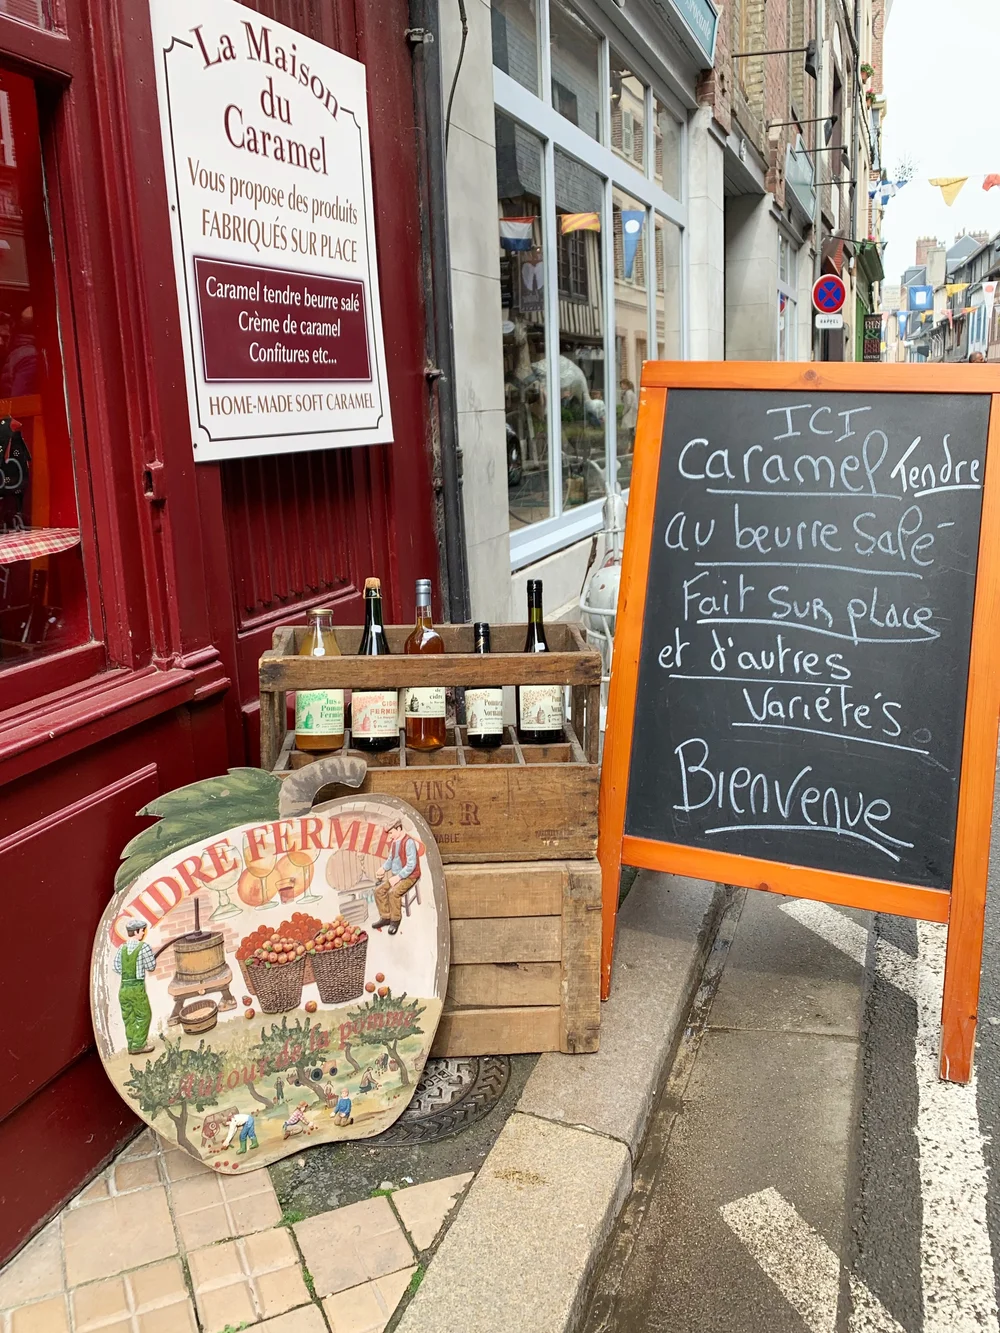 La Maison
du
Caramel
Vous propose des produits
FABRIQUÉS SUR PLACE
Caramel tendre beurre salé
Crème de caramel
Confitures etc...
HOME-MADE SOFT CARAMEL
RAPPEL
ICI
Caramel Tendre
au beurre Salé
Fait Sur place
et d'autres
Variétés
Bienvenue
Jus de
Pomme
Fermier
CIDRE
FERMIER
de cidre
Pommeau
Normandie
VINS
O.R
CIDRE FERMIER
Autour de la pomme